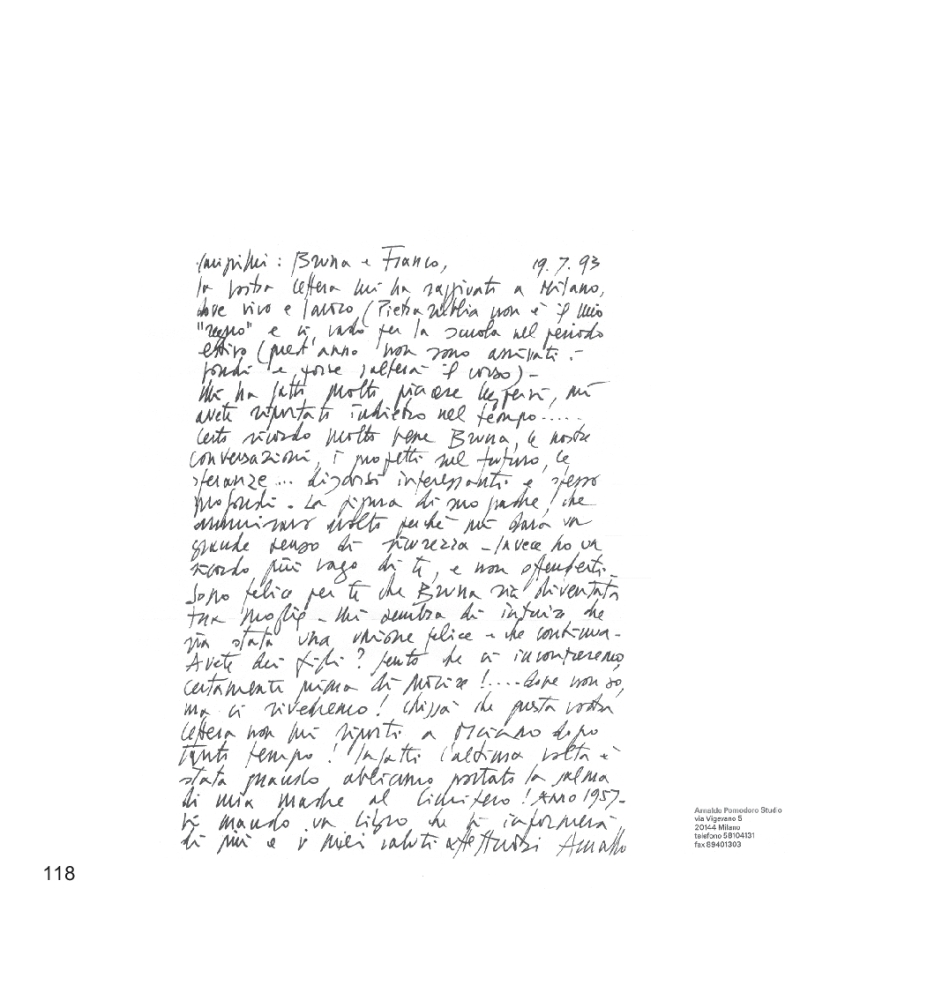 carissimi: Bruna e Franco, 19.7.93
la vostra lettera mi ha raggiunto a Milano,
dove vivo e lavoro (Pietrarubbia non è il mio
"regno" e ci vado per la scuola nel periodo
estivo (quest'anno non sono arrivati i
fondi e forse salterà il corso)-
Mi ha fatto molto piacere leggervi, mi
avete riportato indietro nel tempo.....
Certo ricordo molto bene Bruna, le nostre
conversazioni, i progetti sul futuro, le
speranze... discorsi interessanti e spesso
profondi. La figura di suo padre, che
ammiravo molto perché mi dava un
grande senso di sicurezza - Invece ho un
ricordo più vago di te, e non offenderti.
Sono felice per te che Bruna sia diventata
tua moglie. Mi sembra di intuire che
sia stata una unione felice e che continua.
Avete dei figli? Sento che ci incontreremo
certamente prima di morire!....dove non so,
ma ci rivedremo! Chissà che questa vostra
lettera non mi riporti a Orciano dopo
tanto tempo! Infatti l'ultima volta è
stata quando abbiamo portato la salma
di mia madre al Cimitero! Anno 1957-
Vi mando un libro che vi informerà
di più e i miei saluti affettuosi Arnaldo
Arnaldo Pomodoro Studio
via Vigevano 5
20144 Milano
telefono 58104131
fax 89401303
118